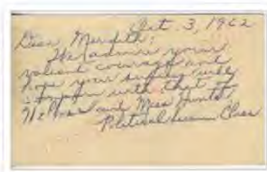 Oct. 3, 1962
Dear Meredith:
We admire your
valiant courage and
hope your bravery will
with that of
and Miss Hunter,
Political Science Class